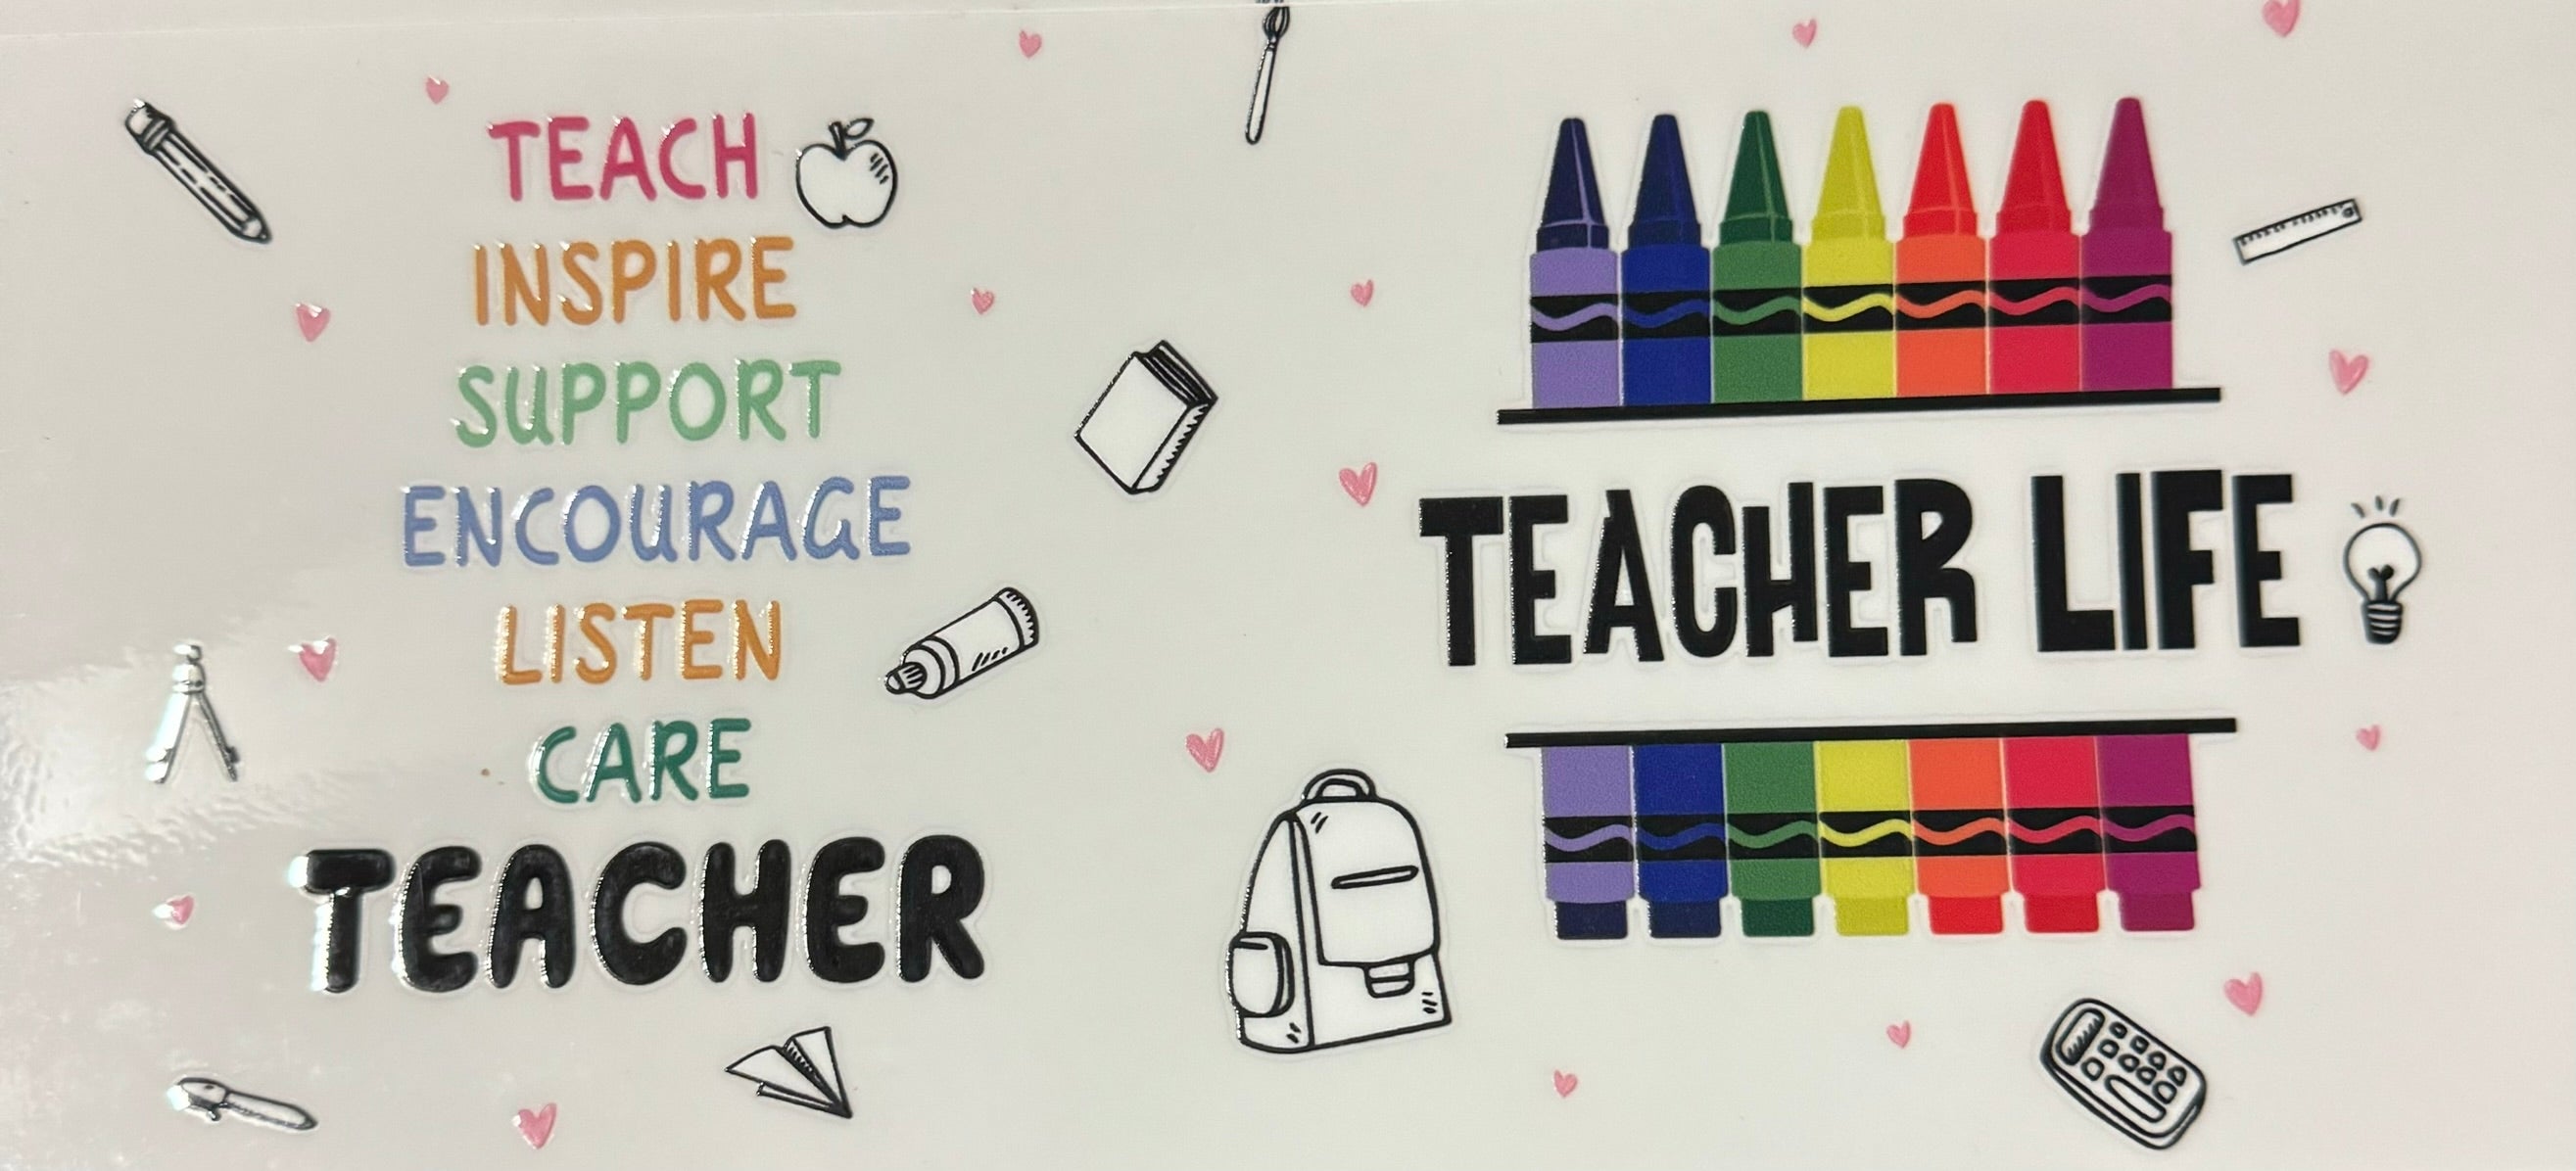 TEACH
INSPIRE
SUPPORT
ENCOURAGE
LISTEN
CARE
TEACHER
TEACHER LIFE